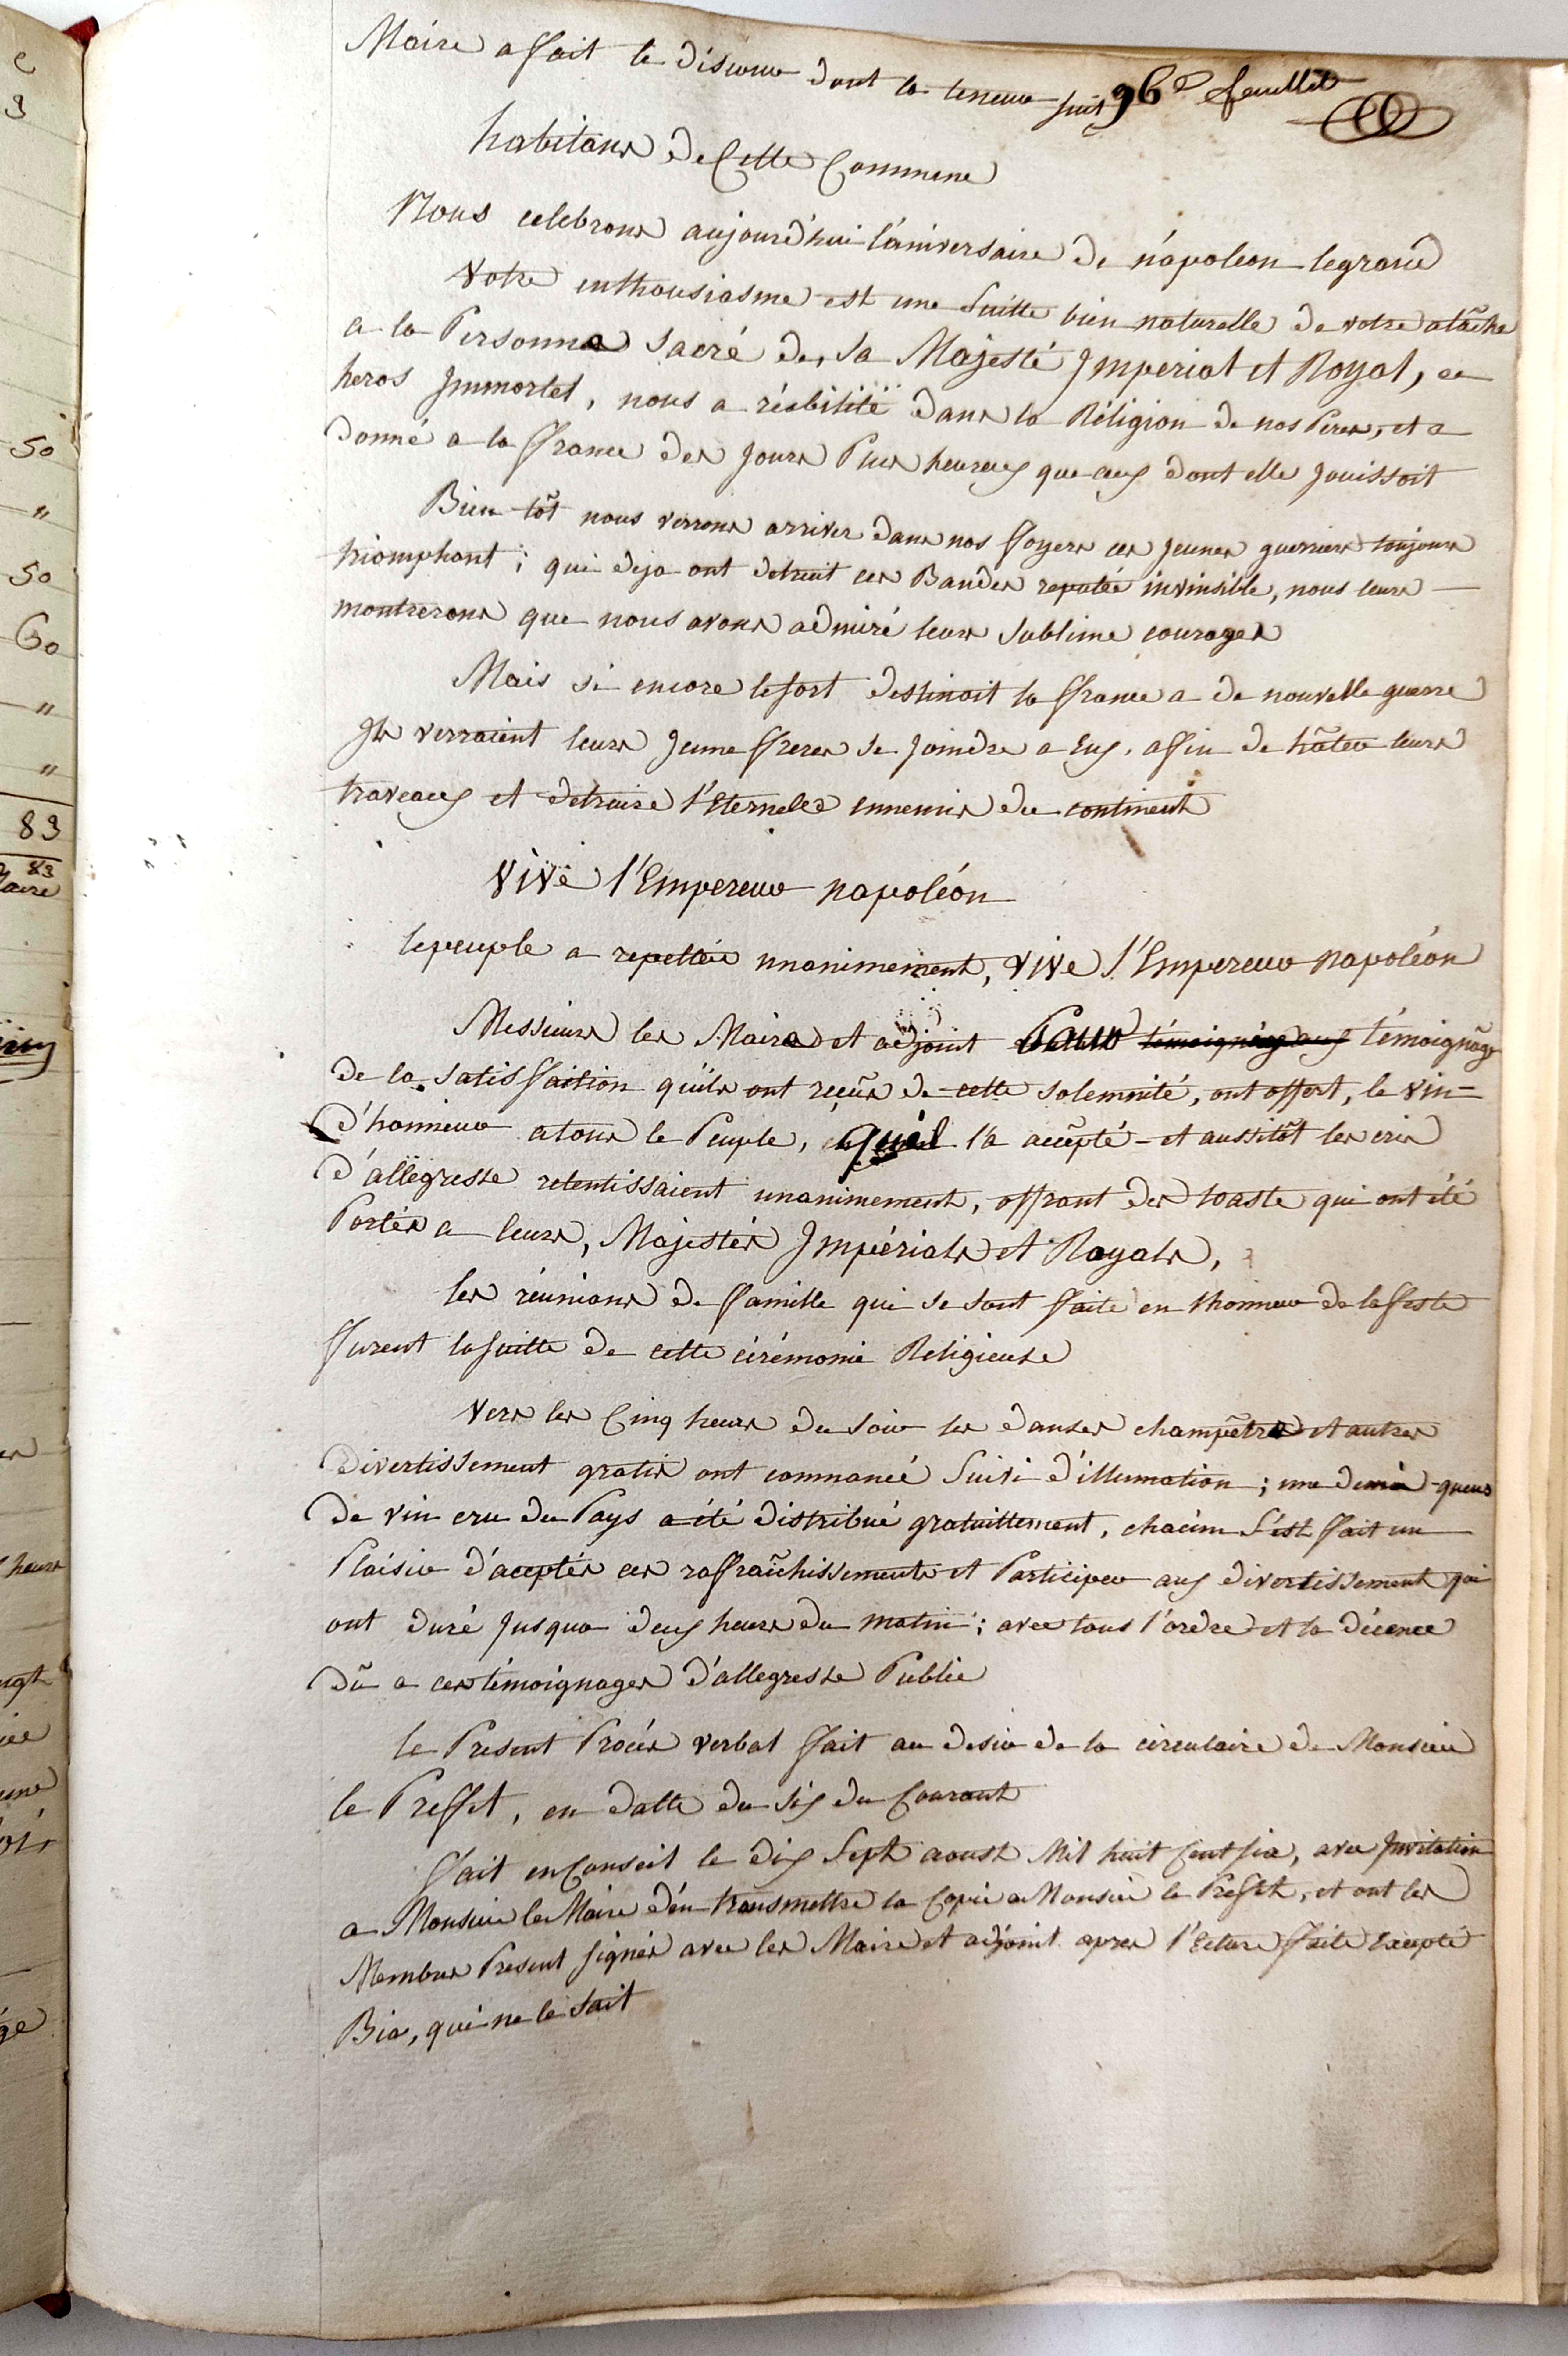 96e feuillet
Maire a fait le discour dont la teneur suit
habitans de Cette Commune
Nous celebrons aujourd'hui l'aniversaire de napoleon legrand
Votre enthousiasme est une Suitte bien naturelle de votre atâche
a la Personne Sacré de, Sa Majesté Jmperial et Royal, ce
heros Jmmortel, nous a réabilité dans la Réligion de nos Peres, et a
donné a la ffrance des Jours Plus heureux que ceux dont elle Jouissoit
Bien tôt nous verrons arriver dans nos ffoyers ces Jeunes guerriers toujours
triomphant ; qui deja ont detruit ces Bandes reputée invinsible, nous leurs
montrerons que nous avons admiré leurs Sublime courages
Mais si encore lesort destinoit la ffrance a de nouvelle guerre
Jls verraient leurs Jeune ffreres se Joindre a Eux, affin de hâter leurs
traveaux et detruire l'Eternelle ennemis du continent
Vive l'Empereur napoléon
lepeuple a repettée unanimement, Vive l'Empereur napoléon
Messieurs les Maire et adjoint Pour témoignage
de la Satisffaition quils ont reçûs de cette Solemnité, ont offert, le vin
d'honneur atous le Peuple, quil l'a accepté et aussitôt les cris
d'allegresse retentissaient unanimement, offrant des toaste qui ont été
Portés a leurs, Majestés Jmpérials et Royals,
les réunions de ffamille qui se sont ffaite en lhonneur de lafeste
ffurent lasuitte de cette cérémonie Religieuse
Vers les Cinq heures du Soir les danses champêtre et autres
divertissement gratis ont commancé Suivi d'illumation ; une demie queue
de vin cru du Pays a été distribué gratuittement, chacun S'est ffait un
Plaisir d'acceptér ces raffraîchissements et Participer aux divertissement qui
ont duré Jusqua deux heures du matin ; avec tous l'ordre et la décence
dû a ces témoignages d'allegresse Public
le Present Procés verbal ffait au desir de la circulaire de Monsieur
le Preffet, en datte du Six du Courant
ffait en Conseil le dix Sept aoust Mil huit Cent six, avec Jnvitation
a Monsieur le Maire d'en transmettre la Copie a Monsieur le Preffet, et ont les
Membres Present signés avec les Maire et adjoint apres l'ecture ffaite Excepté
Bia, qui ne le Sait
50
"
50
60
"
"
83
83